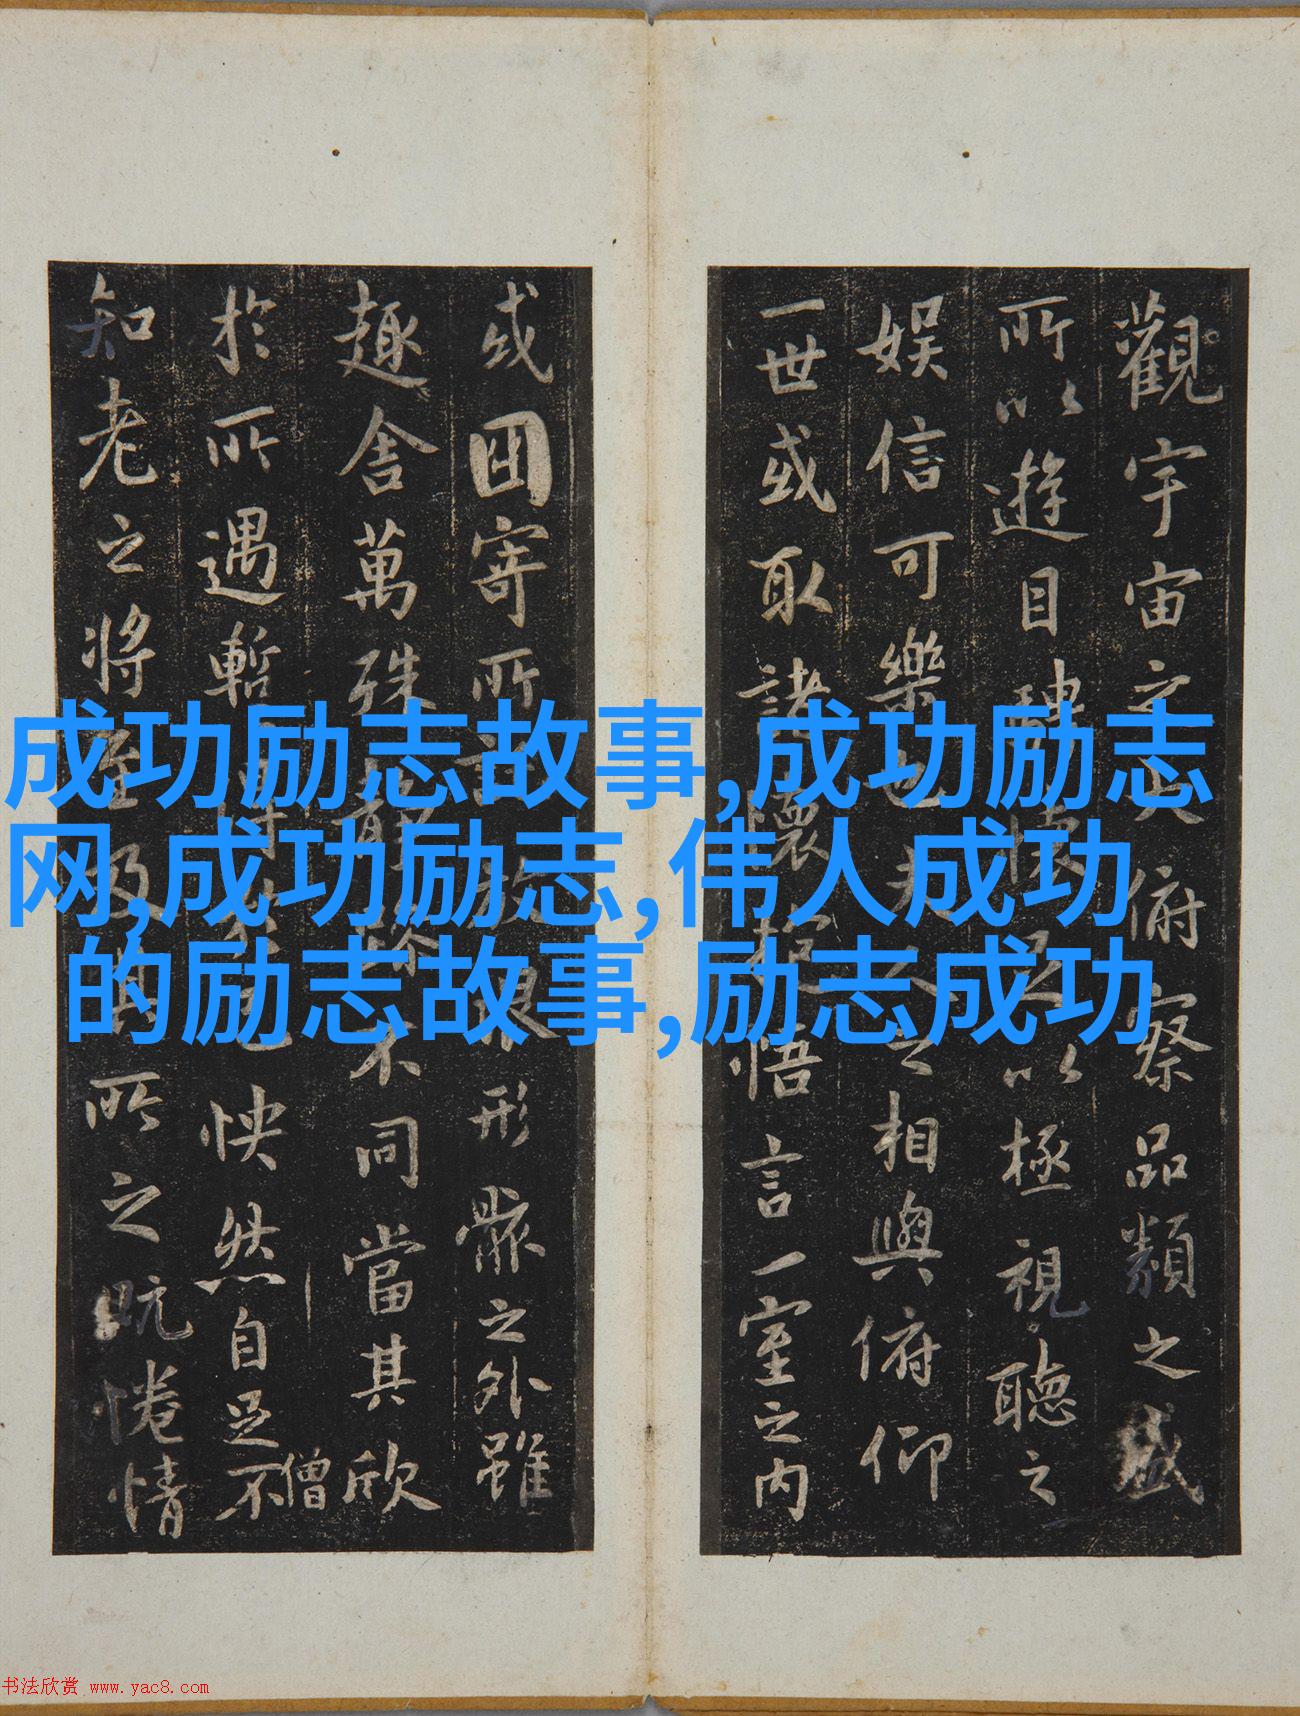 觀宇宙之大俯察品類之盛
所以遊目騁懷足以極視聽之
娛信可樂也夫人之相與俯仰
一世或取諸懷抱悟言一室之內
或因寄所託放浪形骸之外雖
趣舍萬殊靜躁不同當其欣
於所遇暫得於己怏然自足不
僧
知老之將至及其所之既惓情
成功励志故事,成功励志
网,成功励志,伟人成功
的励志故事,励志成功
书法欣赏 www.yac8.com